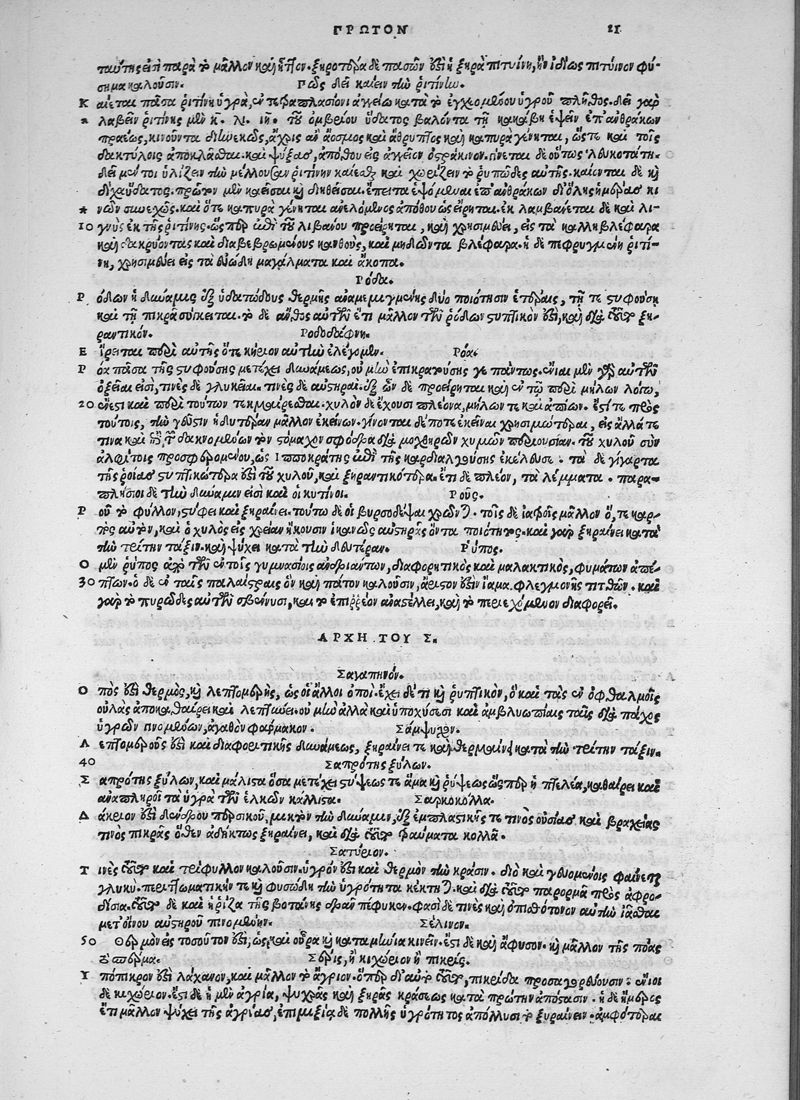 ΠΡΩΤΟΝ 21
ταύτης ἐπὶ παρὰ τὸ μᾶλλον καὶ ἧττον. ξηροτέρα δὲ πασῶν ἐστὶν ἡ ξηρὰ πιτυΐνη, ἣν ἰδίως πιτύινον φύ-
σημα καλοῦσιν. Πῶς δεῖ καίειν τὴν ῥιτίνην.
Καίεται πᾶσα ῥιτίνη ὑγρά, ἐν τετραπλασίονι ἀγγείῳ κατὰ τὸ ἐγχεομένου ὑγροῦ πλῆθος. δεῖ γὰρ
* λαβεῖν ῥιτίνης μὲν κ. λι. ιη. τοῦ ὀμβρίου ὕδατος βαλόντα τῇ κακάβῃ ἕψειν ἐπ' ἀνθράκων
πραέως, κινοῦντα διηνεκῶς, ἄχρις ἂν ἄοσμος καὶ ἄθρυπτος καὶ καπυρὰ γένηται, ὥστε καὶ τοῖς
δακτύλοις ἀποκλᾶσθαι. καὶ ψύξας, ἀπόθου εἰς ἀγγεῖον ὀστράκινον. γίνεται δὲ οὕτως λευκοτάτη.
δεῖ μέντοι ὑλίζειν τὴν μέλλουσαν ῥιτίνην καίεσθαι καὶ χωρίζειν τὸ ῥυπῶδες αὐτῆς. καίονται δὲ καὶ
δίχα ὕδατος. πρῶτον μὲν καεῖσαι καὶ διηθεῖσαι. ἔπειτα ἑψόμεναι ἐπ' ἀνθράκων δι' ὅλης ἡμέρας κι
* νῶν συνεχῶς. καὶ ὅτε καπυρὰ γένηται ἀνελόμενος ἀπόθου ὡς εἴρηται. ἐκ λαμβάνεται δὲ καὶ λι-
10 γνὺς ἐκ τῆς ῥιτίνης. ὥσπερ ἐπὶ τοῦ λιβάνου προείρηται, καὶ χρησιμεύει, εἰς τὰ καλλιβλέφαρα
καὶ δακρύοντας καὶ διαβεβρωμένους κανθούς, καὶ μαδῶντα βλέφαρα. ἡ δὲ πεφρυγμένη ῥιτί-
νη, χρησιμεύει εἰς τὰ εὐώδη μαλάγματα καὶ ἄκοπα.
Ῥόδα.
Ῥόδων ἡ δύναμις ἐξ ὑδατώδους θερμῆς ἀναμεμιγμένης δύο ποιότησιν ἑτέραις, τῇ τε στυφούσῃ
καὶ τῇ πικρᾷ σύγκειται. τὸ δὲ ἄνθος αὐτῶν ἔτι μᾶλλον τῶν ῥόδων στυπτικόν ἐστι, καὶ διὰ τοῦτο ξη-
ραντικόν. Ῥοδοδάφνη.
Εἴρηται περὶ αὐτῆς ὅτε νήριον αὐτὴν ἐλέγομεν. Ῥόα.
Ῥόα πᾶσα τῆς στυφούσης μετέχει δυνάμεως, οὐ μὴν ἐπικρατούσης γε πάντως. ἔνιαι μὲν γὰρ αὐτῶν
ὀξεῖαι εἰσί, τινὲς δὲ γλυκεῖαι. τινὲς δὲ αὐστηραί. ἐξ ὧν δὲ προείρηται καὶ ἐν τῷ περὶ μήλων λόγῳ,
20 ἔνεστι καὶ περὶ τούτων τεκμαίρεσθαι. χυλὸν δὲ ἔχουσι πλέονα, μήλων τε καὶ ἀπίων. ἔστι τε πρὸς
τούτοις, τὴν γεῦσιν ἡδυτέραν μᾶλλον ἐκείνων. γίνονται δέ ποτε ἐκείνων χρησιμώτεραι, εἰς ἄλλά τε
τινὰ καὶ ἐπὶ τῶν δακνομένων τὸν στόμαχον σφόδρα διὰ μοχθηρῶν χυμῶν περιουσίαν. τοῦ χυλοῦ σὺν
ἀλφίτοις προσφερομένου, ὡς Ἱπποκράτης ἐπὶ τῆς καρδιαλγούσης ἐκέλευσε. τὰ δὲ γίγαρτα
τῆς ῥοιᾶς στυπτικώτερα ἐστὶ τοῦ χυλοῦ, καὶ ξηραντικότερα. ἔτι δὲ πλέον, τὰ λέμματα. παρα-
πλήσιοι δὲ τὴν δύναμιν εἰσὶ καὶ οἱ κυτίνοι. Ῥοῦς.
Ῥοῦ τὸ φύλλον, στύφει καὶ ξηραίνει. τούτῳ δὲ οἱ βυρσοδέψαι χρῶνται. τοῖς δὲ ἰατροῖς μᾶλλον ὅ, τε καρ-
πὸς αὐτῶν, καὶ ὁ χυλὸς εἰς χρείαν ἥκουσιν ἱκανῶς αὐστηρᾶς ὄντα ποιότητος. καὶ γὰρ ξηραίνει κατὰ
τὴν τρίτην τάξιν. καὶ ψύχει κατὰ τὴν δευτέραν. Ῥύπος.
Ὁ μὲν ῥύπος ἀπὸ τῶν ἐν τοῖς γυμνασίοις ἀνδριάντων, διαφορητικὸς καὶ μαλακτικός, φυμάτων ἀπέ-
30 πτων. ὁ δὲ ἐν ταῖς παλαίστραις ὃν καὶ πάτον καλοῦσιν, ἄριστον ἐστὶν ἴαμα φλεγμονῆς τιτθῶν. καὶ
γὰρ τὸ πυρῶδες αὐτῶν σβέννυσι, καὶ τὸ ἐπιρρέον ἀναστέλλει, καὶ τὸ περιεχόμενον διαφορεῖ.
ΑΡΧΗ ΤΟΥ Σ.
Σαγαπηνόν.
Ὀπός ἐστι θερμός, καὶ λεπτομερής, ὡς οἱ ἄλλοι ὀποί. ἔχει δέ τι καὶ ῥυπτικόν, ὃ καὶ τὰς ἐν ὀφθαλμοῖς
οὐλὰς ἀποκαθαίρει καὶ λεπτύνει. οὐ μὴν ἀλλὰ καὶ ὑποχύσεσι καὶ ἀμβλυωπίαις ταῖς διὰ πάχος
ὑγρῶν γινομένων, ἀγαθὸν φάρμακον. Σάμψυχον.
Λεπτομεροῦς ἐστι καὶ διαφορητικῆς δυνάμεως, ξηραίνει τε καὶ θερμαίνει κατὰ τὴν τρίτην τάξιν.
40 Σαπρότης ξύλων.
Σαπρότης ξύλων, καὶ μάλιστα ὅσα μετέχει στύψεώς τε ἅμα καὶ ῥύψεως ὥσπερ ἡ πτελέα, καθαίρει καὶ
ἀναπληροῖ τὰ ὑγρὰ τῶν ἑλκῶν κάλλιστα. Σαρκοκόλλα.
Δάκρυόν ἐστι δένδρου περσικοῦ, μικτὴν τὴν δύναμιν, ἐξ ἐμπλαστικῆς τε τινὸς οὐσίας καὶ βραχείας
τινὸς πικρᾶς ὅθεν ἀδήκτως ξηραίνει, καὶ διὰ τοῦτο τραύματα κολλᾷ.
Σατύριον.
Τινὲς τοῦτο καὶ τρίφυλλον καλοῦσιν. ὑγρόν ἐστι καὶ θερμὸν τὴν κρᾶσιν. διὸ καὶ γευομένοις φαίνεται
γλυκύ. περιττωματικὴν τε καὶ φυσώδη τὴν ὑγρότητα κέκτηται. καὶ διὰ τοῦτο παρορμᾷ πρὸς ἀφρο-
δίσια. τοῦτο δὲ καὶ ἡ ῥίζα τῆς βοτάνης δρᾶν πέφυκεν. φασὶ δὲ τινὲς καὶ ὀπισθότονον αὐτὴν ἰᾶσθαι
μετ' οἴνου αὐστηροῦ πινομένην. Σέλινον.
50 Θερμόν ἐς τοσοῦτον ἐστί, ὡς καὶ οὖρα καὶ καταμήνια κινεῖν. ἔστι δὲ καὶ ἄφυσον. καὶ μᾶλλον τῆς πόας
τὸ σπέρμα. Σέρις, ἢ κιχώριον ἢ πικρίς.
Ὑπόπικρόν ἐστι λάχανον, καὶ μᾶλλον τὸ ἄγριον. ὅπερ δι' αὐτὸ τοῦτο, πικρίδα προσαγορεύουσιν. ἔνιοι
δὲ κιχώριον. ἔστι δὲ ἡ μὲν ἀγρία, ψυχρᾶς καὶ ξηρᾶς κράσεως κατὰ πρώτην ἀπόστασιν. ἡ δὲ ἥμερος
ἔτι μᾶλλον ψύχει τῆς ἀγρίας, ἐπιμιξίᾳ δὲ πολλῆς ὑγρότητος ἀπόλλυσι τὸ ξηραίνειν. ἀμφότεραι